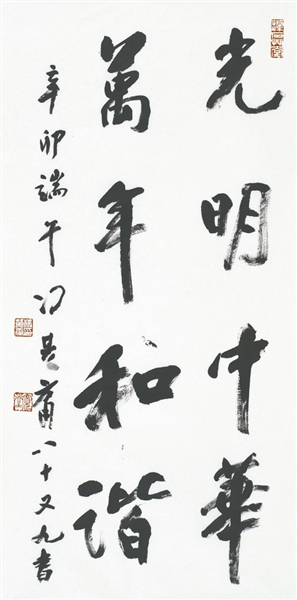 光明中華
萬年和諧
辛卯端午馮其庸八十又九書